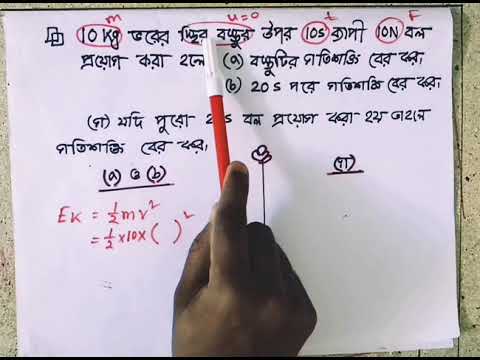 m u=0 t F
10 Kg ভরের স্থির বস্তুর উপর 10s ব্যাপী 10N বল
প্রয়োগ করা হলো (a) বস্তুটির গতিশক্তি বের কর।
(b) 20s পরে গতিশক্তি বের কর।
(গ) যদি পুরো বল প্রয়োগ করা হয় তাহলে
গতিশক্তি বের কর।
(a) ও (b) (গ)
Eₖ = ½mv²
= ½×10×( )²